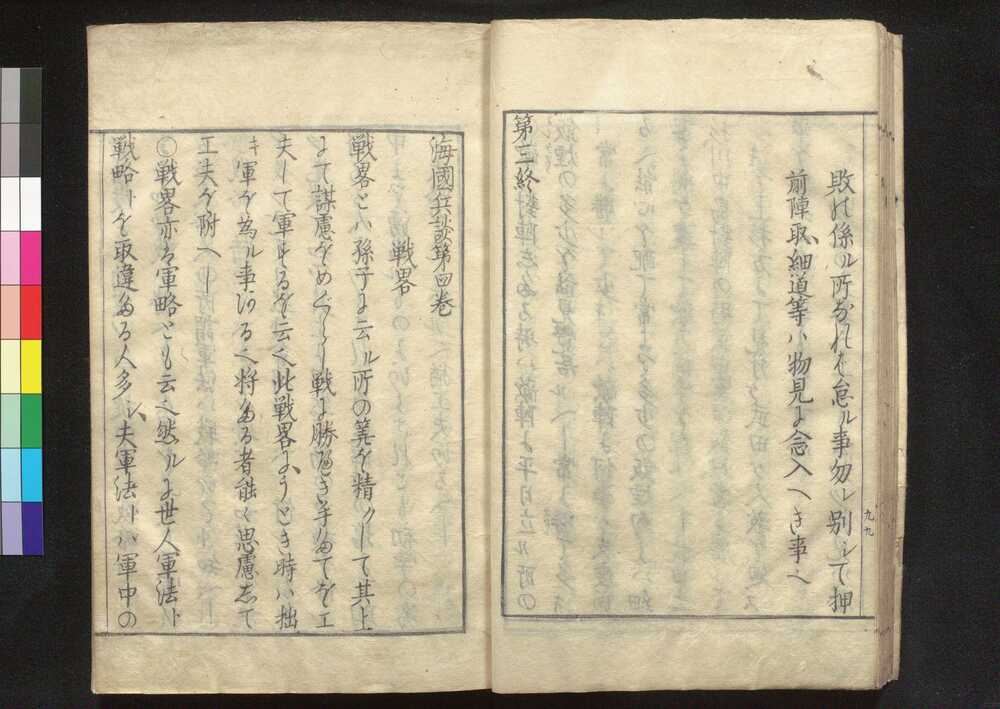 敗の係ル所なれば怠ル事勿レ別して押
前陣取、細道等ハ物見よ念入へき事へ
第三終
九九
海國兵談第四巻
戦畧
戦畧とハ孫子よ云ル所の筭を精クして其上
よて謀慮をめぐらし戦よ勝へき手あてを工
夫して軍するを云へ此戦畧よ、うとき時ハ拙
キ軍を為ル事有るへ将たる者能く思慮して
工夫を附へし
〇戦畧亦ハ軍略とも云へ然ルよ世人軍法ト
戦略トを取違たる人多シ、夫軍法トハ軍中の